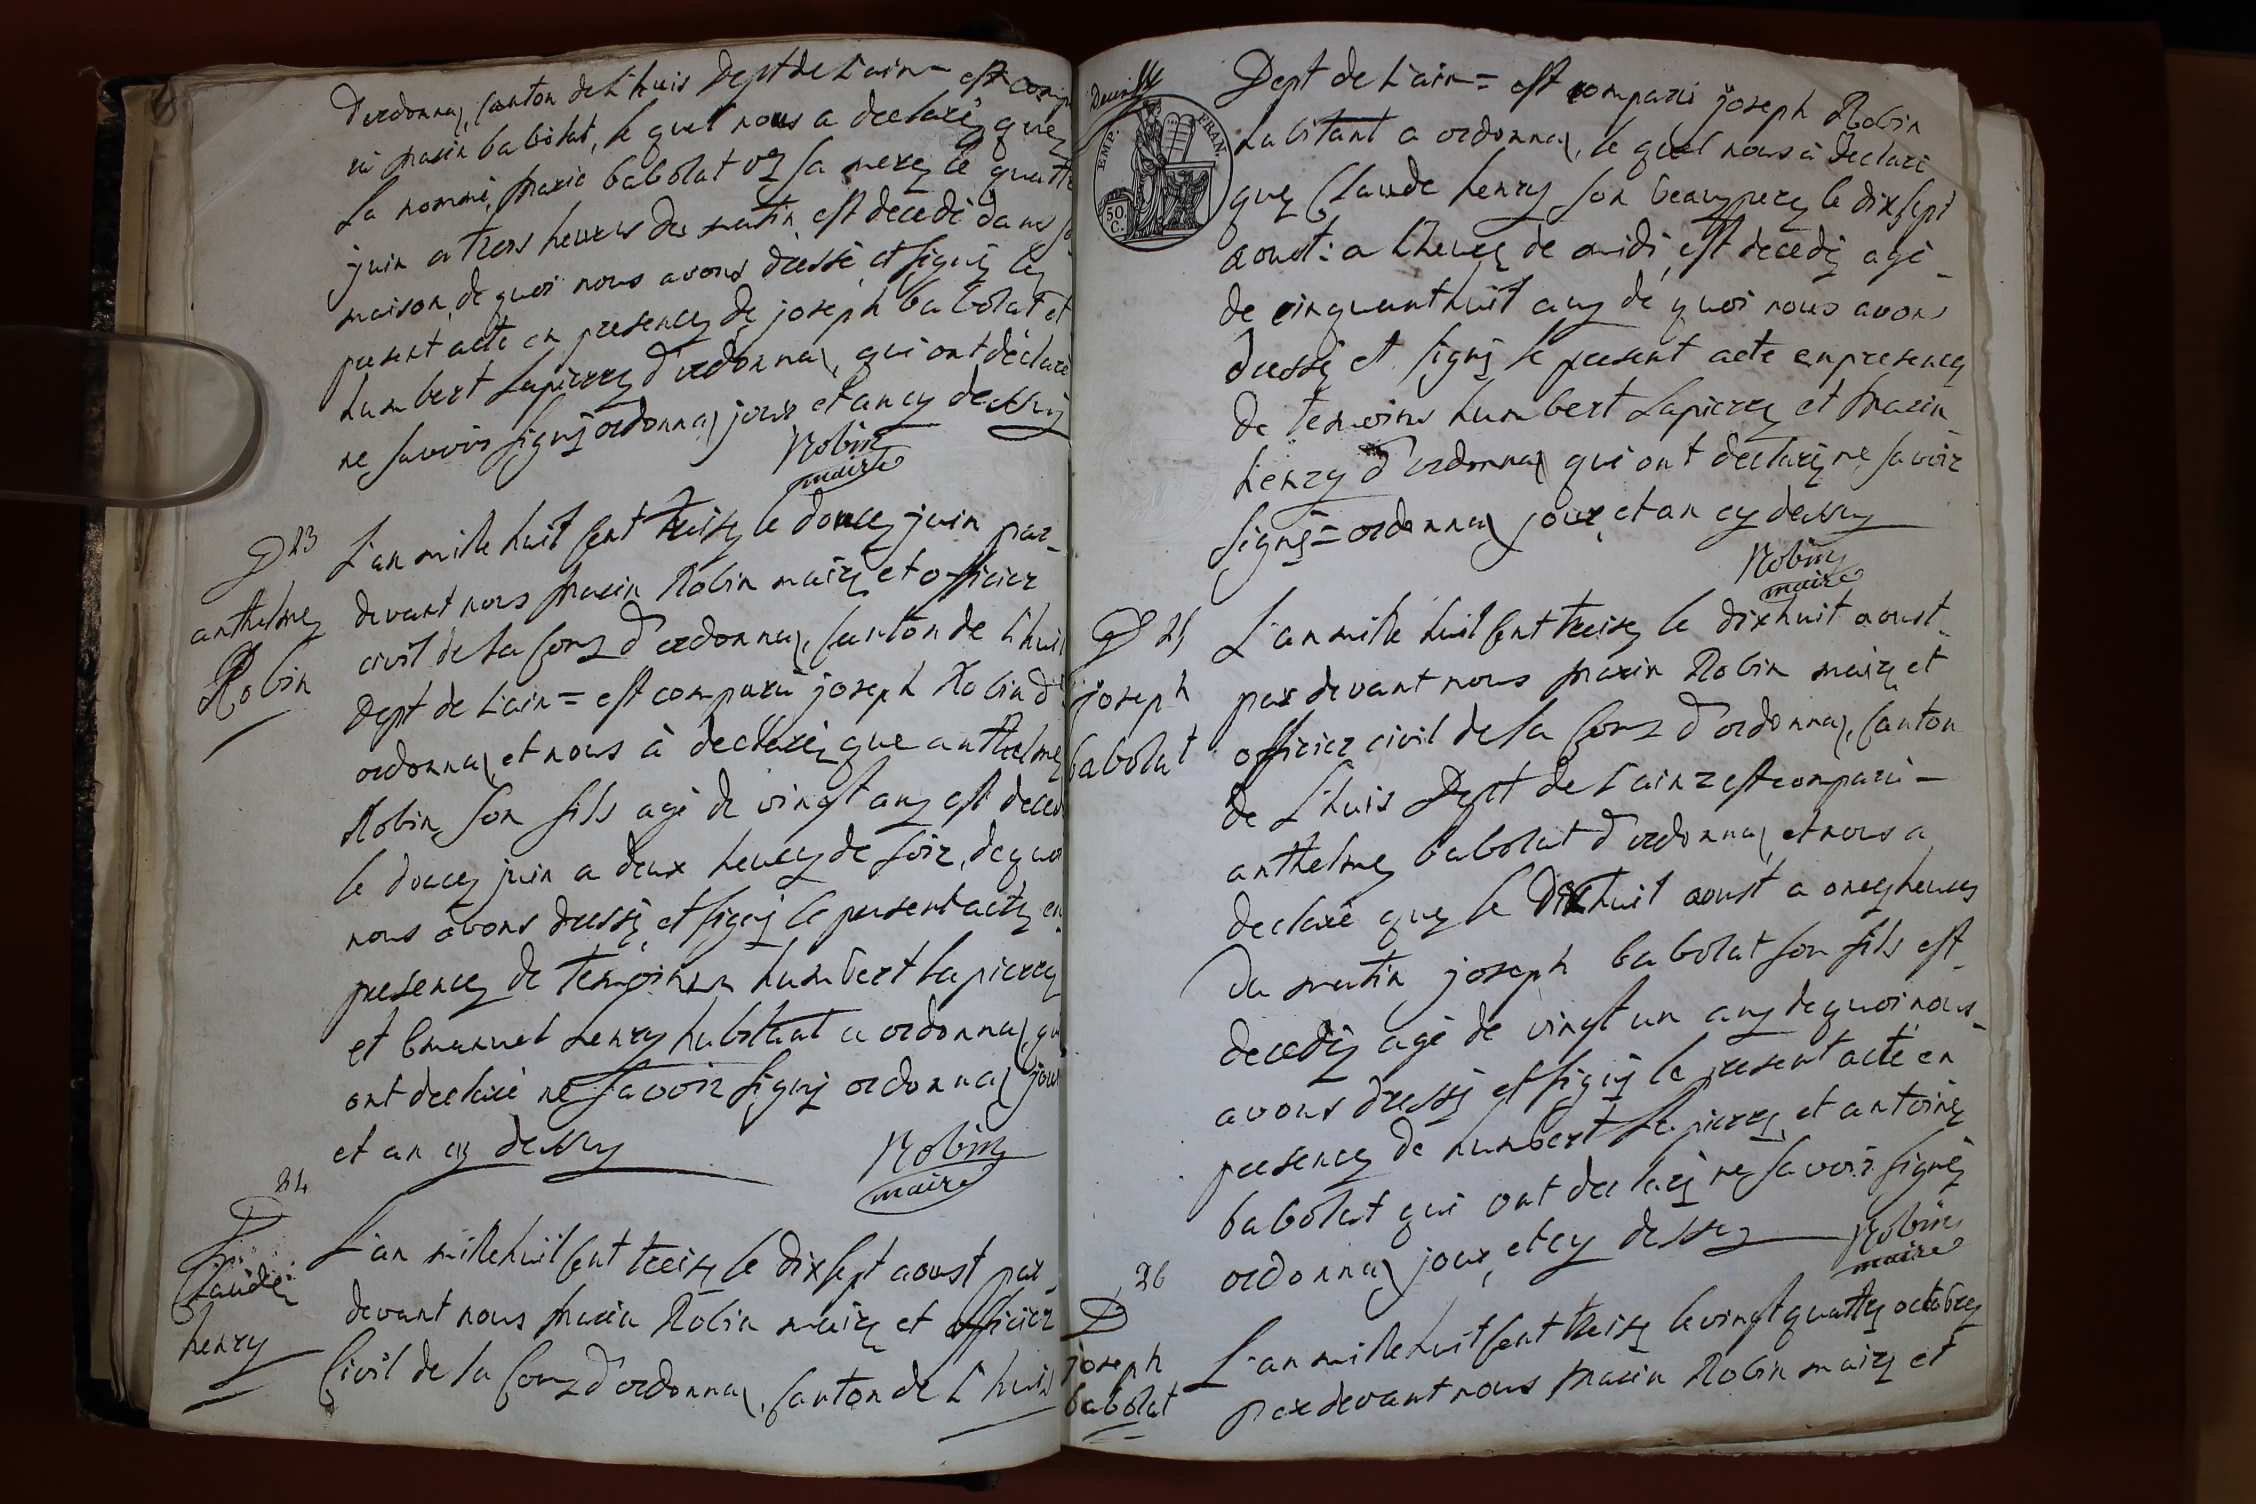 D'ordonnaz, Canton de L'huis Dept de L'ain = est comp
ru marin babolat, le quel nous a declaré que
La nommé, marie babolat vz sa mere le quattre
juin a trois heures du matin est decedé dans sa
maison, de quoi nous avons dressé et signé le
present acte en presence de joseph babolat et
humbert Lapierre d'ordonnaz, qui ont déclaré
ne savoir signé ordonnaz jour et an cy dessus
Robin
maire
D 23
anthelme
Robin
L'an mille huit cent treize le douze juin par
devant nous marin Robin maire et officier
civil de la Com d'ordonnaz, Canton de L'huis
Dept de L'ain = est comparu joseph Robin d'
ordonnaz, et nous à declaré que anthelme
Robin son fils agé de vingt ans est deced
le douze juin a deux heures de soir, de quoi
nous avons dressé et signé le present acte en
presence de temoins humbert lapierre
et Emanuel henry habitant a ordonnaz qui
ont declaré ne savoir signé ordonnaz jour
et an cy dessus
Robin
maire
24
D
Claude
henry
L'an mille huit cent treize le dix sept aoust par
devant nous marin Robin maire et officier
Civil de la Com d'ordonnaz, Canton de L'huis
EMP. FRAN.
50
C.
Dept de L'ain = est comparu joseph Robin
habitant a ordonnaz, le quel nous à declaré
que Claude henry son beaupere le dix sept
aoust: a L'heure de midi est decedé agé
de cinquant huit ans de quoi nous avons
dressé et signé le present acte en presence
de temoins humbert Lapierre et marin
henry d'ordonnaz qui ont declaré ne savoir
signé = ordonnaz jour et an cy dessus
Robin
maire
D 25
joseph
babolat
L'an mille huit cent treize le dix huit aoust
par devant nous marin Robin maire et
officier civil de la Com d'ordonnaz, Canton
de L'huis Dept de L'ain = est comparu
anthelme babolat d'ordonnaz, et nous a
declaré que le dix huit aoust a onze heures
du matin joseph babolat son fils est
decedé agé de vingt un ans de quoi nous
avons dressé et signé le present acte en
presence de humbert Lapierre et antoine
babolat qui ont declaré ne savoir signé
ordonnaz jour, et cy dessus
Robin
maire
26
D
joseph
babolat
L'an mille huit cent treize le vingt quattre octobre
par devant nous marin Robin maire et